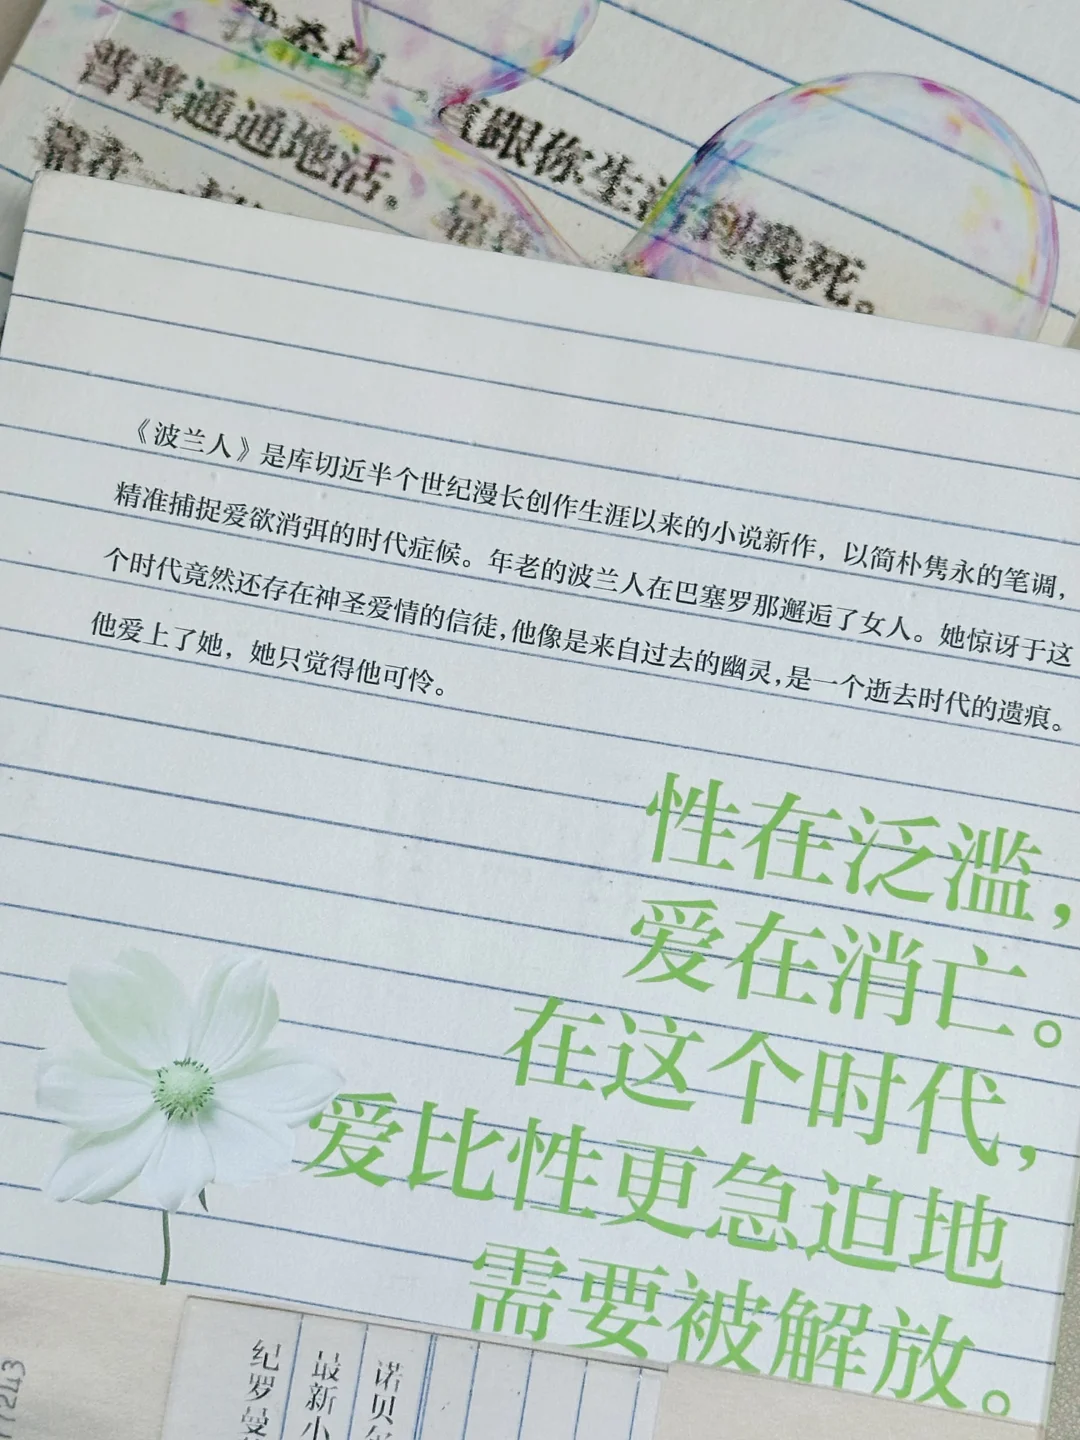 我希望一直跟你生活到我死。
普普通通地活。
《波兰人》是库切近半个世纪漫长创作生涯以来的小说新作，以简朴隽永的笔调，
精准捕捉爱欲消弭的时代症候。年老的波兰人在巴塞罗那邂逅了女人。她惊讶于这
个时代竟然还存在神圣爱情的信徒，他像是来自过去的幽灵，是一个逝去时代的遗痕。
他爱上了她，她只觉得他可怜。
性在泛滥，
爱在消亡。
在这个时代，
爱比性更急迫地
需要被解放。
诺贝
最新小
纪罗曼